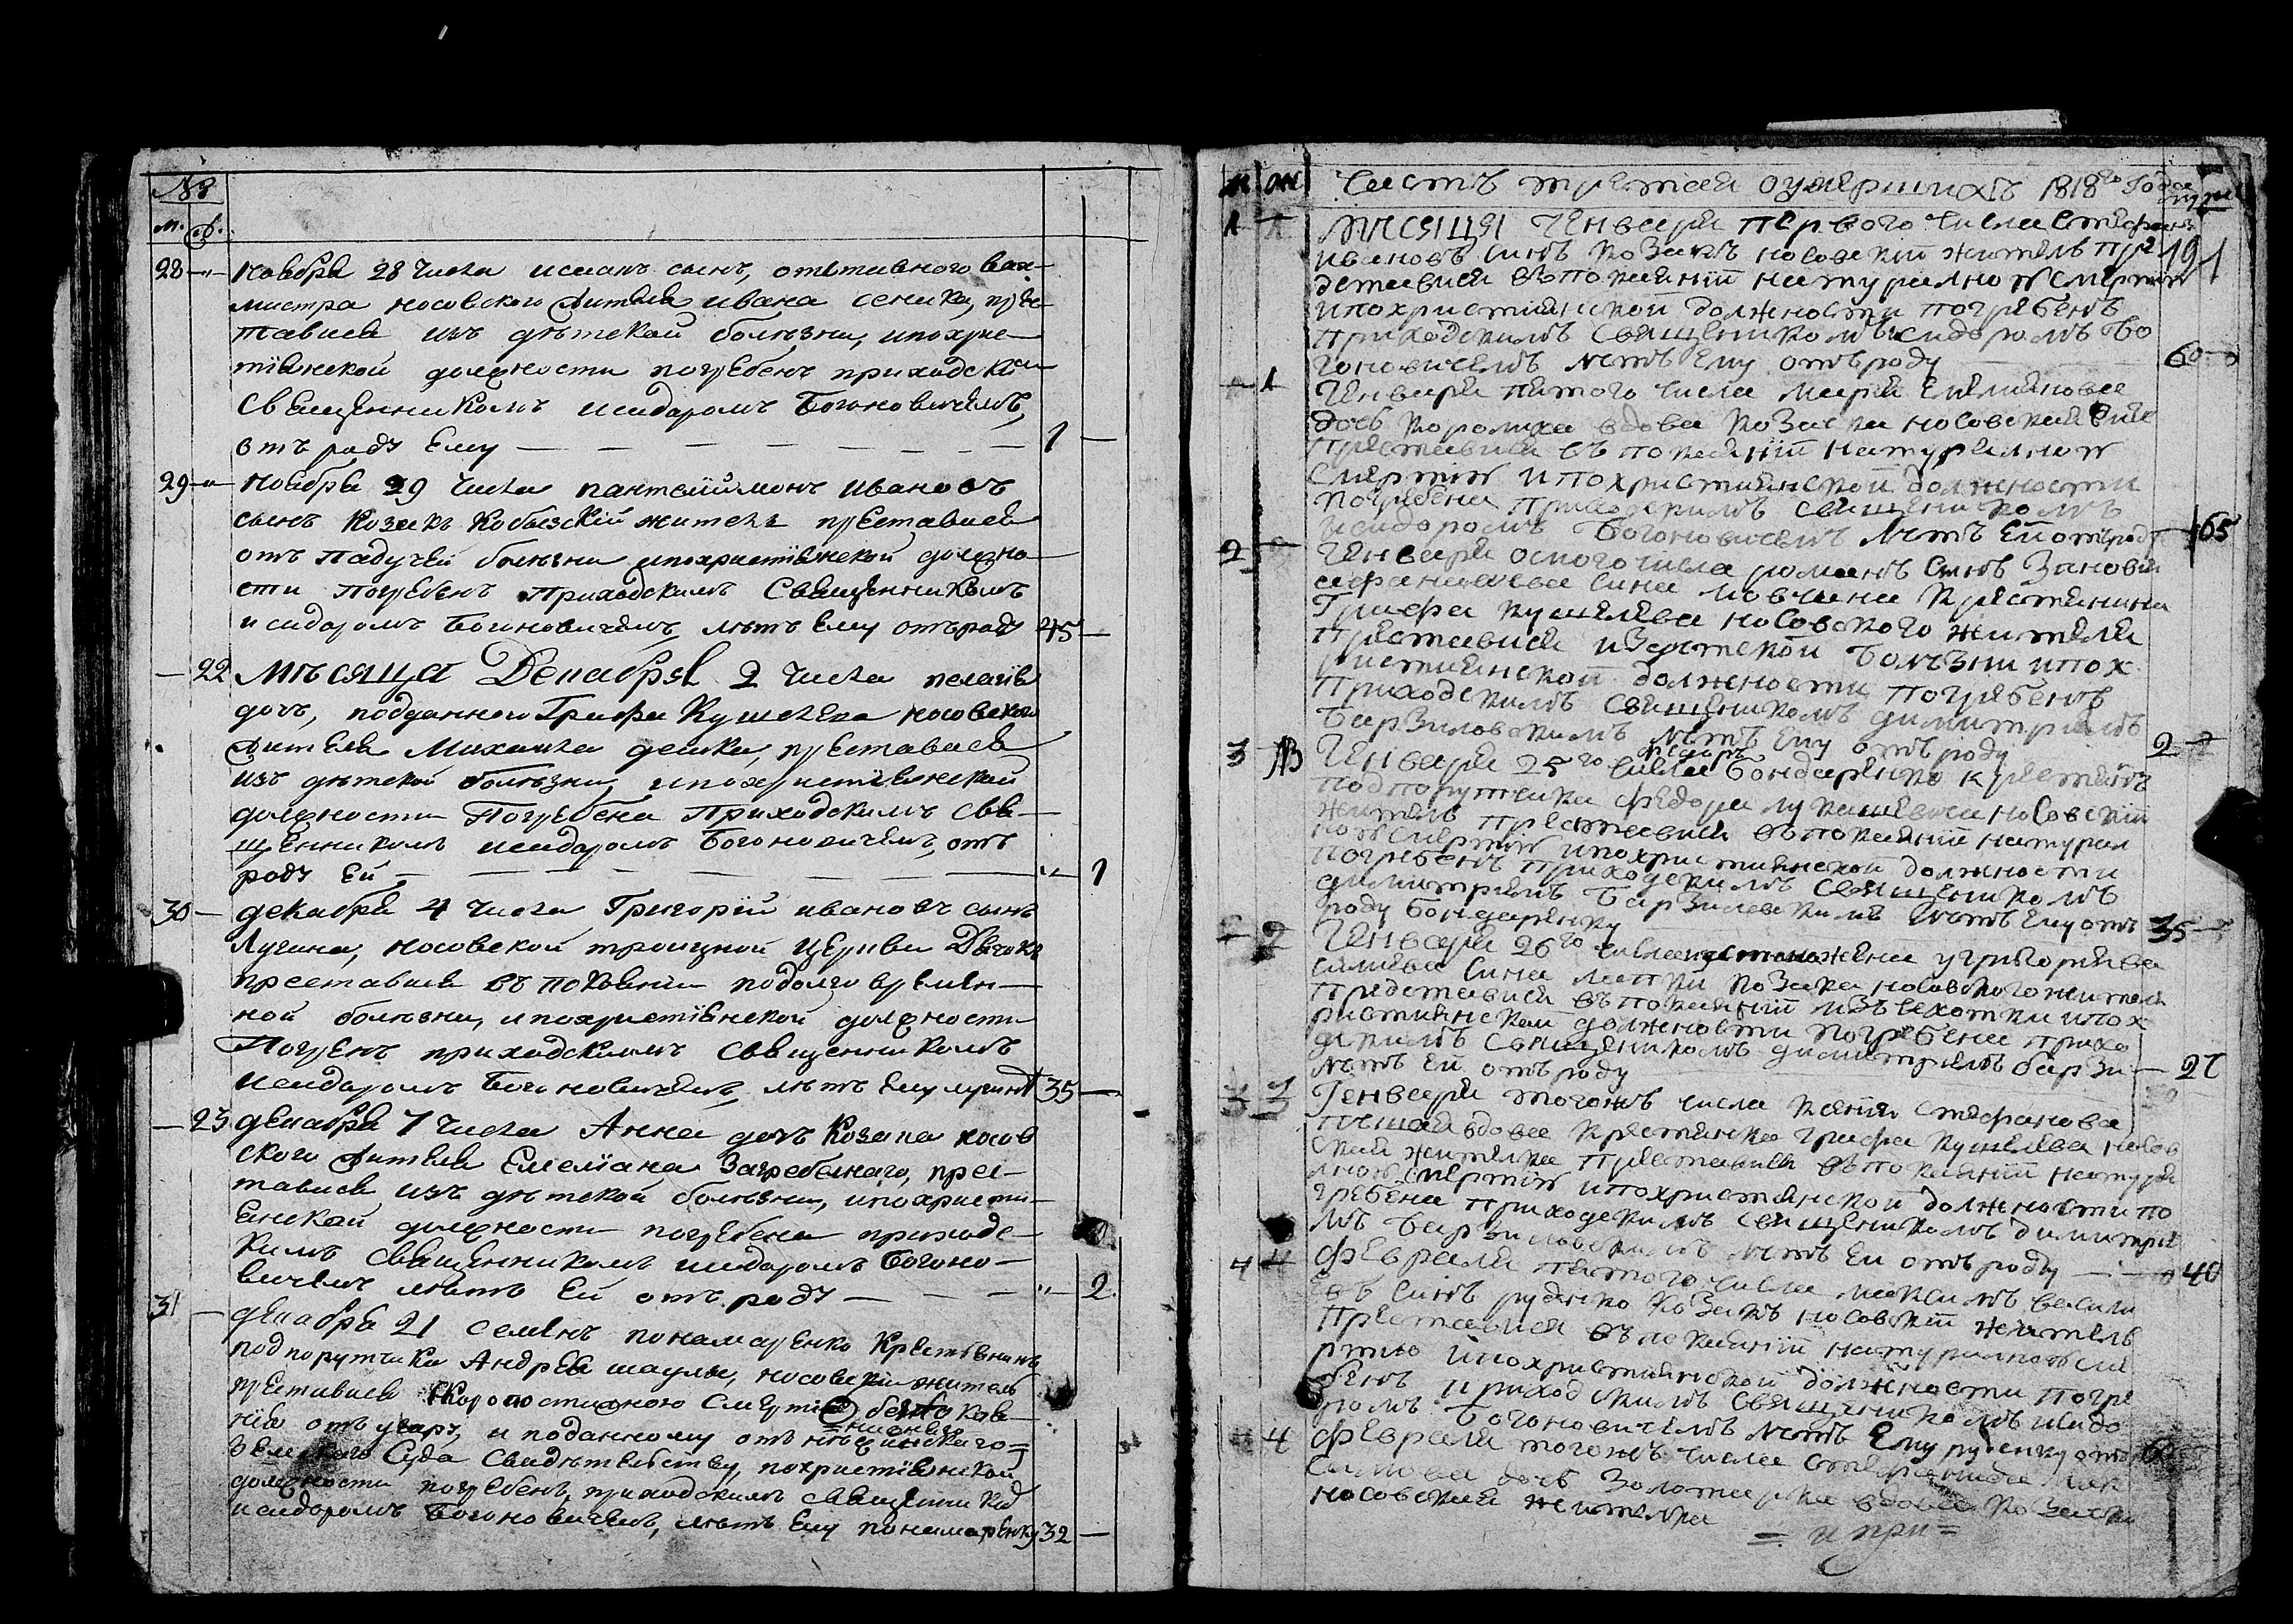 №
м. ж.
28 Ноября 28 числа исаакъ сынъ, отставного вах-
мистра носовского жителя Ивана сеника, прес-
тавися изъ дѣтской болѣзни, ипохрис-
тіянской должности погребенъ приходским
Священникомъ исидоромъ Богоновичемъ,
отъ роду Ему — 1 —
29 Ноября 29 числа пантелиімонъ Ивановъ
сынъ Козакъ Кобызскій житель преставися
отъ падучей болѣзни ипохристіянской должно-
сти погребенъ приходскимъ Священникомъ
исидоромъ Богоновичемъ, лѣтъ Ему отъ роду 45 —
— 22 Мѣсяца Декабря 2 числа пелагія
дочь, подданного Графа Кушелева носовского
жителя Михаила дейка, преставися
изъ дѣтской болѣзни, ипохристіянской
должности Погребена Приходскимъ Свя-
щенникомъ исидоромъ Богоновичемъ, отъ
роду Ей — 1
30 — декабря 4 числа Григорій ивановъ сынъ
Лучина, носовской троицкой Церкви Дьячокъ
преставися въ покаяніи подолговремен-
ной болѣзни, ипохристіянской должности
Погренъ приходскимъ Священникомъ
исидоромъ Богоновичемъ, лѣтъ Ему 35 —
— 23 декабря 7 числа Анна дочь Козака носов
ского жителя Емеліана Загребелнаго, прес-
тавися изъ дѣтской болѣзни, ипохристи-
янской должности погребена приходс-
кимъ Священникомъ исидоромъ Богоно-
вичемъ лѣтъ Ей отъ роду — 2
31 — декабря 21 семенъ понамаренко Крестянинъ
подпорутчика Андрея шаулы, носовскій житель
преставися скоропостижною Смертію безпокая-
нія отъ угару, и поданному отъ нѣжинскаго
Земского Суда Свидѣтельству, похристіянской
должности погребенъ, приходскимъ священником
исидоромъ Богоновичемъ, лѣтъ Ему понамаренку 32 —
Часть третая оумершихъ 1818го Года
1 Мѣсяця Генваря первого числа Стефанъ 191
ивановъ синъ козакъ носовскій житель пре
дставися въпокаяніи натуралною смертію
ипохристиянской должности погребенъ
приходскимъ Священикомъ исидоромъ Бо
гоновичемъ лѣтъ Ему отъ роду 60
1 Генваря пятого числа марія Емелянова
дочь королиха вдова козачка носовская
преставися въ покаяніи натуралною
смертію ипохристиянской должности
погребена приходскимъ священикомъ
исидоромъ Богоновичемъ лѣтъ Ей отроду 65
2 Генваря осмого числа романъ синъ Зановия
сина мовчана крестянина
Графа кушелева носовского жителя
преставися издѣтской болѣзни ипох
ристиянской должности погребенъ
приходскимъ священикомъ димитриемъ
Барзиловскимъ лѣтъ Ему отъ роду 2
3 Генваря 25го числа Федоръ Бондаренко крестянинъ
подпорутчика Федора лукашевича носовскій
житель преставися въпокаяніи натурал
ною смертію ипохристиянской должности
погребенъ приходскимъ священикомъ
димитриемъ Барзиловскимъ лѣтъ Ему отъ
роду Бондаренку 35
2 Генваря 26го числа жена
сина лапки козака носовского жителя
представися въпокаяніи изъ чехотки ипох
ристиянской должности погребена прихо
дскимъ священикомъ димитриемъ барзи
лѣтъ Ей отъ роду 27
3 Генваря тогожъ числа ксения Стефанова
вдова крестянка Графа кушелева носов
ская жителка преставися въпокаяніи натура
лною смертію ипохристиянской должности по
гребена приходскимъ священикомъ димитрие
мъ Барзиловскимъ лѣтъ Ей отъ роду — 40
4 Февраля пятого числа максимъ васили
евъ синъ руденко козакъ носовскій житель
преставися въпокаяніи натуралною сме
ртию ипохристиянской должности погре
бенъ приходскимъ Священикомъ исидо
ромъ Богоновичемъ лѣтъ Ему руденку отъ 60
4 Февраля тогожъ числа стефанида
дочь вдова козачка
носовская жителка
= и при =